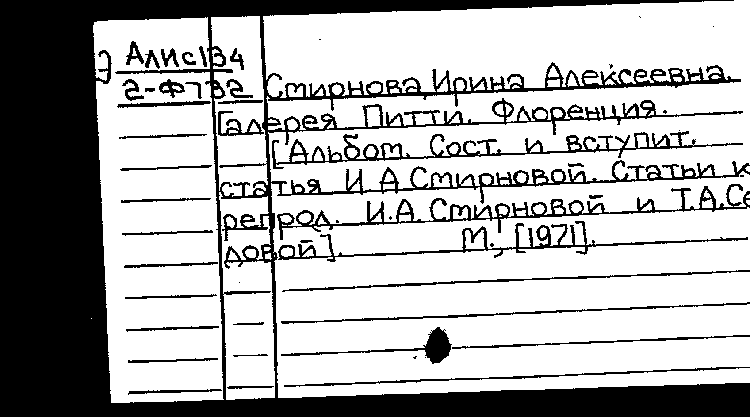 Э Алис134
2-Ф732 Смирнова, Ирина Алексеевна.
Галерея Питти. Флоренция.
[Альбом. Сост. и вступит.
статья И А Смирновой. Статьи к
репрод. И.А. Смирновой и Т.А.Се
довой]. М., [1971].